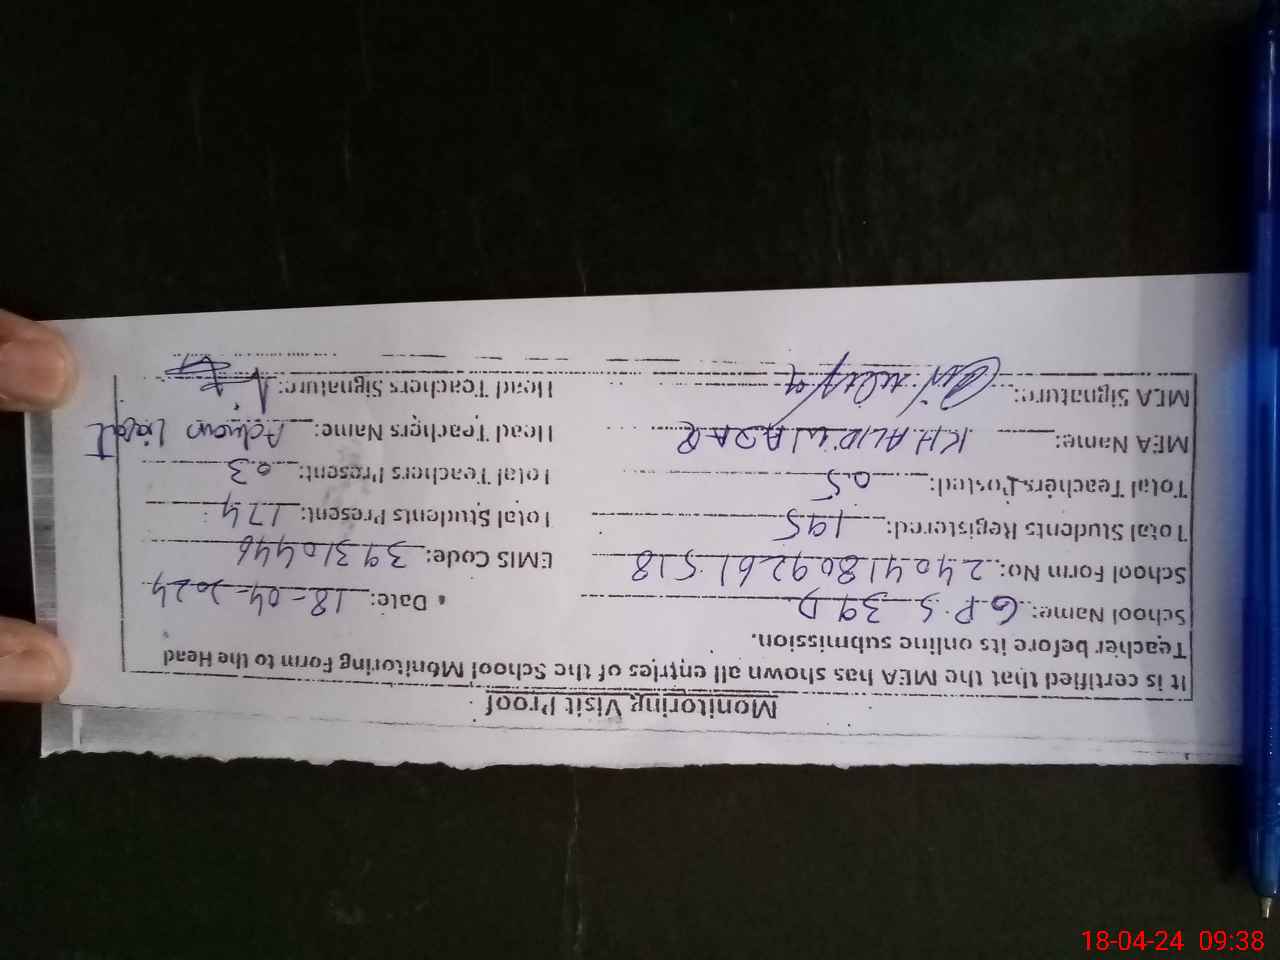 Monitoring Visit Proof
It is certified that the MEA has shown all entries of the School Monitoring Form to the Head
Teacher before its online submission.
School Name: G.P.S 39 D Date: 18-04-2024
School Form No: 24041809261518 EMIS Code: 39310446
Total Students Registered: 195 Total Students Present: 174
Total Teachers Posted: 05 Total Teachers Present: 03
MEA Name: KHALID WAQAR Head Teachers Name: Adnan Liaqat
MEA Signature: Head Teachers Signature:
18-04-24 09:38